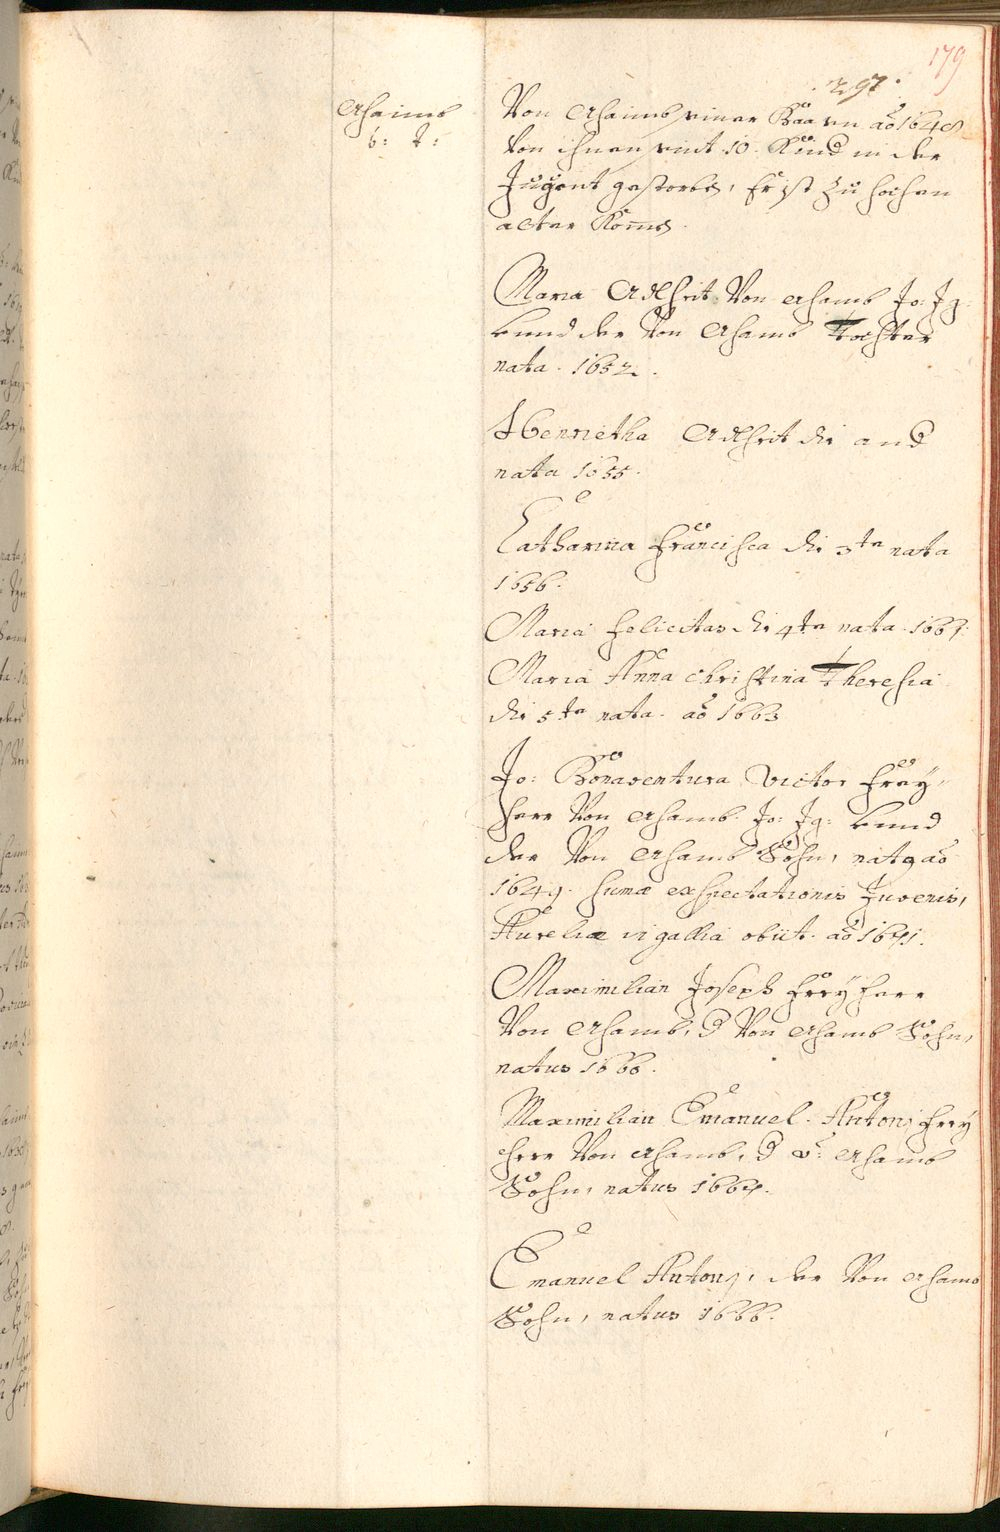 179
297.
Chaimb
b: t:
Von Chaimb einer aō 1648
Von ihnen seint 10. Kind in der
Jugent gestorbē, Er ist zu hochen
alter Komē.
Maria Adlheit Von Chamb Jo: Jg:
und der Von Chamb Tochter
nata. 1652.
Henrietha Adlheit die and
nata 1655.
Catharina Francisca die 3te nata
1656.
Maria Felicitas die 4te nata. 1661.
Maria Anna Christina Theresia
die 5te nata. aō 1663
Jo: Bonaventura Victor Frey-
herr Von Chamb. Jo: Jg: und
der Von Chamb Sohn, nat9 aō
1649. sumæ exspectationis Juvenis,
Aureliæ in gallia obiit. aō 1671.
Maximilian Joseph Freyherr
Von Chamb, d Von Chamb Sohn,
natus 1660.
Maximilian Emanuel. Antonj Frey
herr Von Chamb, d v: Chamb
Sohn, natus 1664.
Emanuel Antonj, der Von Chamb
Sohn, natus 1666.